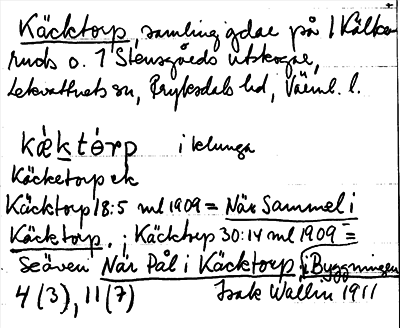 Käcktorp, samling gdar på 1 Kälke-
ruds o. 1 Stensgårds utskogar,
Lekvattnets sn, Fryksdals hd, Värml. l.
kæ̀którp i klunga
Käcketorp ek
Käcktorp 18:5 ml 1909 = När Sammel i
Käcktorp. ; Käcktorp 30:14 ml 1909 =
Seäven När Pål i Käcktorp i Byggningen
4 (3), 11 (7) Isak Wallin 1911